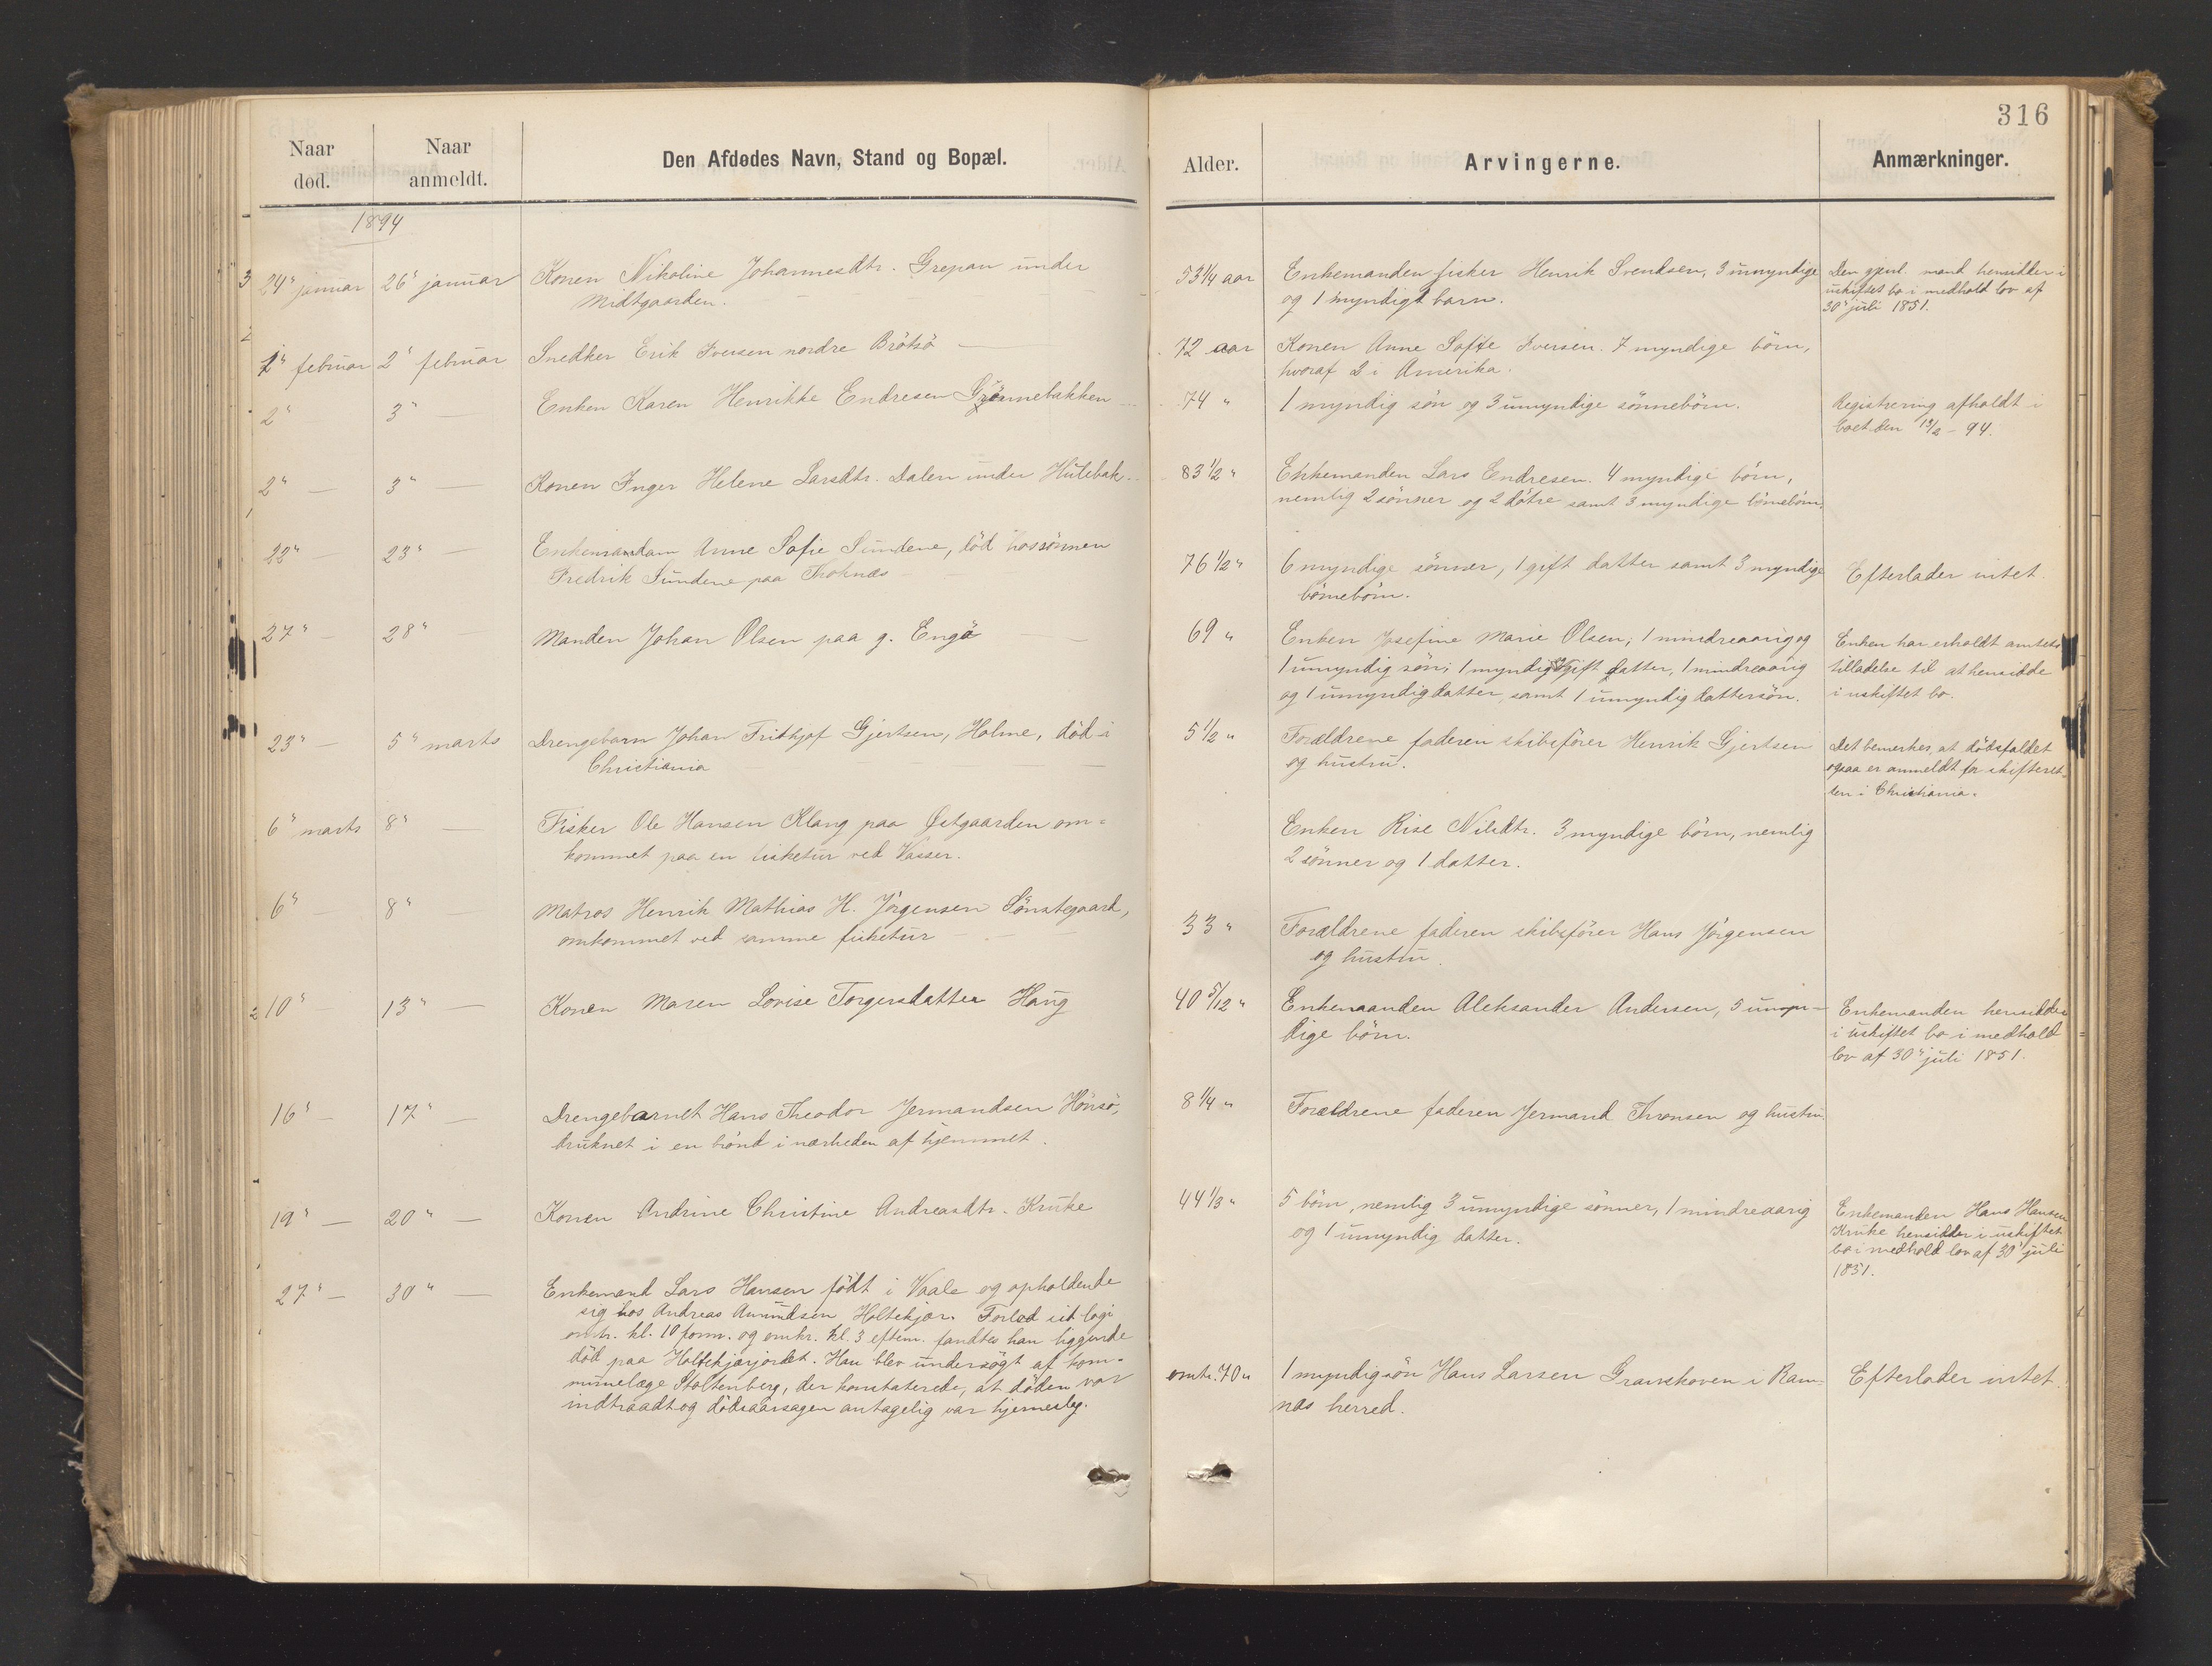 316
Naar død.
Naar anmeldt.
Den Afdødes Navn, Stand og Bopæl.
Alder.
Arvingerne.
Anmærkninger.
1894
24" januar
26" januar
Konen Nikoline Johannesdtr. Grepan under
Midtgaarden.
53 1/4 aar
Enkemanden fisker Henrik Svendsen, 3 umyndige
og 1 myndigt barn.
Den gjenl. mand hensidder i
uskiftet bo i medhold lov af
30" juli 1851.
1" februar
2" februar
Snedker Erik Iversen nordre Brötsö
72 aar
Konen Anne Sofie Iversen. 7 myndige börn,
hvoraf 2 i Amerika.
2"
3" —
Enken Karen Henrikke Endresen Grönnebakken
74 "
1 myndig sön og 3 umyndige sönnebörn.
Registrering afholdt i
boet den 13/2 - 94.
2" —
3" —
Konen Inger Helene Larsdtr. Dalen under Hulebak
83 1/2 "
Enkemanden Lars Endresen. 4 myndige börn,
nemlig 2 sönner og 2 dötre samt 3 myndige börnebörn.
22"
23" —
Enkemadam Anne Sofie Sundene, död hos sönnen
Fredrik Sundene paa Thoknæs
76 1/2 "
6 myndige sönner, 1 gift datter samt 3 myndige
börnebörn.
Efterlader intet.
27" —
28" —
Manden Johan Olsen paa g. Engö
69 "
Enken Josefine Marie Olsen; 1 mindreaarig og
1 umyndig sön; 1 myndig gift datter, 1 mindreaarig
og 1 umyndig datter, samt 1 umyndig dattersön.
Enken har erholdt amtets
tilladelse til at hensidde
i uskiftet bo.
23" —
5" marts
Drengebarn Johan Frithjof Gjertsen, Holme, död i
Christiania
5 1/2 "
Forældrene faderen skibsförer Henrik Gjertsen
og hustru.
Det bemerkes, at dödsfaldet
ogsaa er anmeldt for skifteret-
ten i Christiania.
6" marts
8" —
Fisker Ole Hansen Klang paa Østgaarden om-
kommet paa en fisketur ved Vasser.
Enken Rise Nilsdtr. 3 myndige börn, nemlig
2 sönner og 1 datter.
6"
8" —
Matros Henrik Mathias H. Jörgensen Sönstegaard,
omkommet ved samme fisketur
33 "
Forældrene faderen skibsförer Hans Jörgensen
og hustru.
10" —
13" —
Konen Maren Lovise Torgersdatter Haug
40 5/12 "
Enkemanden Aleksander Andersen, 5 umyn-
dige börn.
Enkemanden hensidder
i uskiftet bo i medhold
lov af 30" juli 1851.
16" —
17" —
Drengebarnet Hans Theodor Jermandsen Hönsö,
druknet i en brönd i nærheden af hjemmet.
8 1/4 "
Forældrene faderen Jermand Thronsen og hustru.
19" —
20" —
Konen Andrine Christine Andreasdtr. Kruke
44 1/3 "
5 börn, nemlig 3 umyndige sönner, 1 mindreaarig
og 1 umyndig datter.
Enkemanden Hans Hansen
Kruke hensidder i uskiftet
bo i medhold lov af 30" juli
1851.
27" —
30" —
Enkemand Lars Hansen födt i Vaale og opholdende
sig hos Andreas Amundsen Holtekjær. Forlod sit logi
omtr. kl. 10 form. og omkr. kl. 3 efterm. fandtes han liggende
död paa Holtekjærjordet. Han blev undersögt af kom-
munelæge Stoltenberg, der konstaterede, at döden var
indtraadt og dödsaarsagen antagelig var hjerneslag.
omtr. 70 "
1 myndig sön Hans Larsen Gravskoven i Ram-
næs herred.
Efterlader intet.